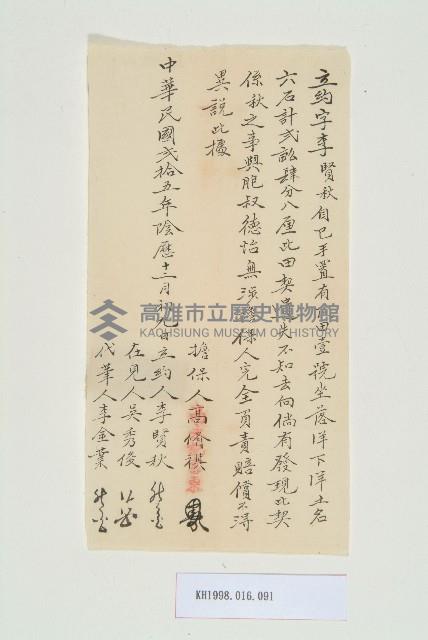 立約字李賢秋自己手置有田壹號坐落洋下洋土名
六石計弍畝肆分八厘此田契遺失不知去向倘有發現此契
係秋之事與胞叔德怡無涉擔保人完全負責賠償不得
異說此據
擔保人高脩祺
中華民國弍拾五年陰曆十二月初九日立約人李賢秋
在見人吳秀俊
代筆人李金業
高雄市立歷史博物館
KAOHSIUNG MUSEUM OF HISTORY
KH1998.016.091